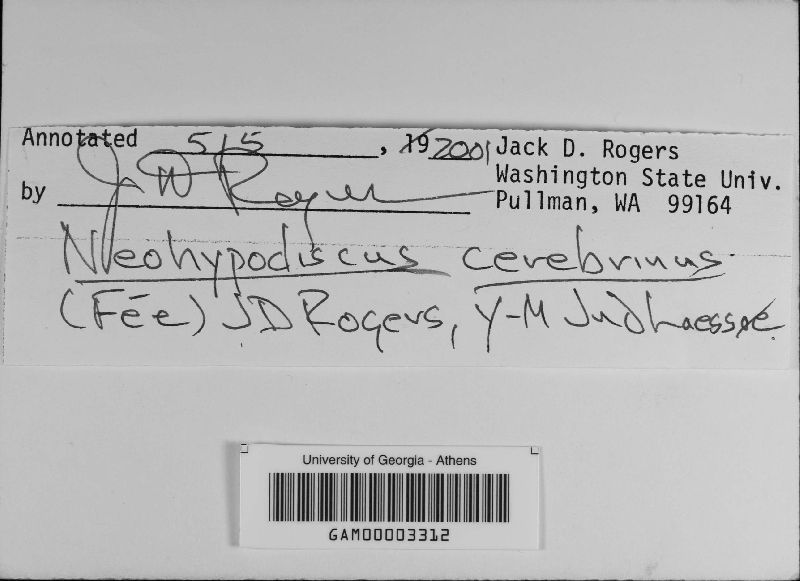 Annotated 5/5, 19 2001 Jack D. Rogers
Washington State Univ.
by J D Rogers Pullman, WA 99164
Neohypodiscus cerebrinus
(Fée) JD Rogers, Y-M Ju & Laessøe
University of Georgia - Athens
GAM00003312